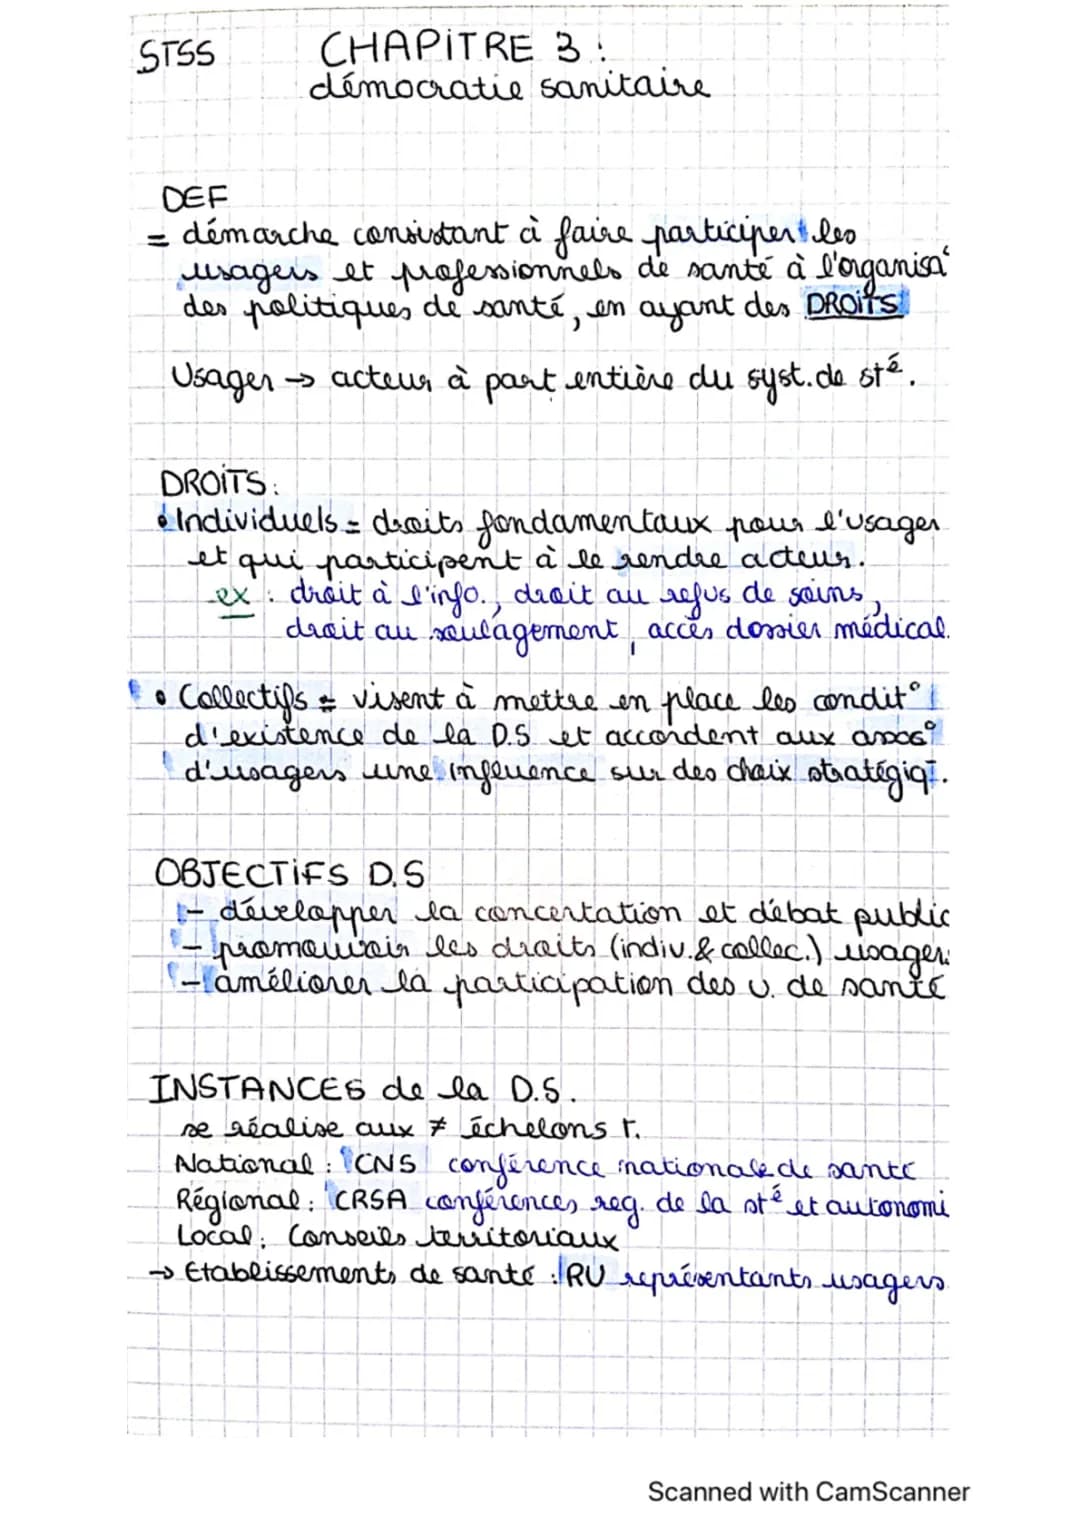 STSS CHAPITRE 3 :
démocratie sanitaire
DEF
= démarche consistant à faire participer les
usagers et professionnels de santé à l'organisa°
des politiques de santé, en ayant des DROITS
Usager → acteur à part entière du syst. de sté.
DROITS :
• Individuels = droits fondamentaux pour l'usager
et qui participent à le rendre acteur.
ex : droit à l'info., droit au refus de soins,
droit au soulagement, accès dossier médical.
• Collectifs = visent à mettre en place les condit°
d'existence de la D.S et accordent aux assos°
d'usagers une influence sur des choix stratégiq
OBJECTIFS D.S
- développer la concertation et débat public
- promouvoir les droits (indiv. & collec.) usagers
- améliorer la participation des u. de santé
INSTANCES de la D.S.
se réalise aux ≠ échelons T.
National : CNS conférence nationale de santé
Régional : CRSA conférences reg. de la sté et autonomi
Local : Conseils territoriaux
→ Etablissements de santé : RU représentants usagers
Scanned with CamScanner